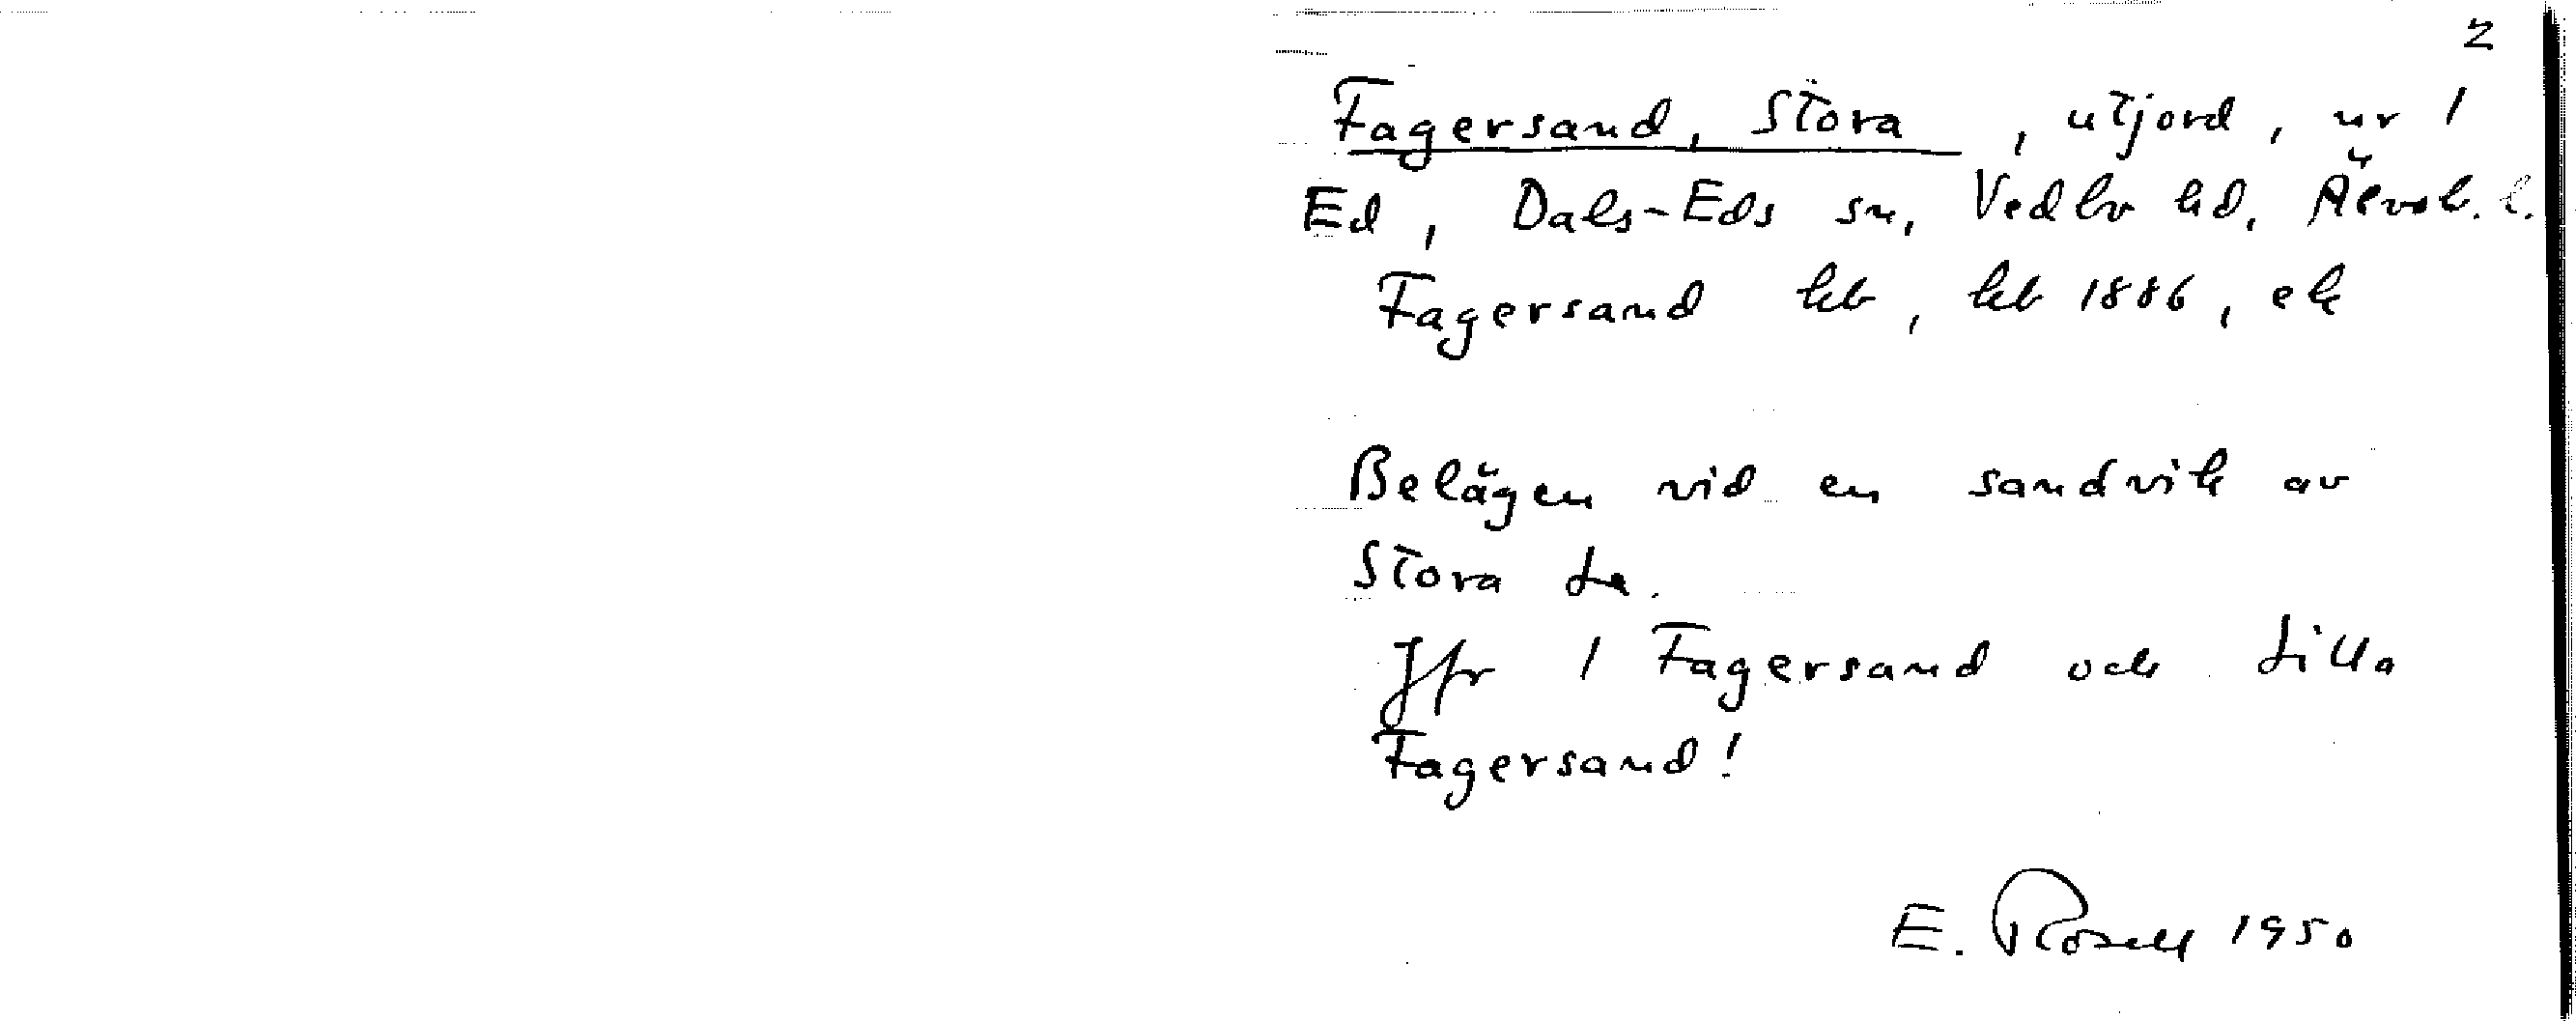 2
Fagersand, Stora, utjord, ur 1
Ed, Dals-Eds sn, Vedbo hd, Älvsb. l.
Fagersand kb, kb 1886, ek
Belägen vid en sandvik av
Stora Le.
Jfr 1 Fagersand och Lilla
Fagersand!
E. Rosell 1950